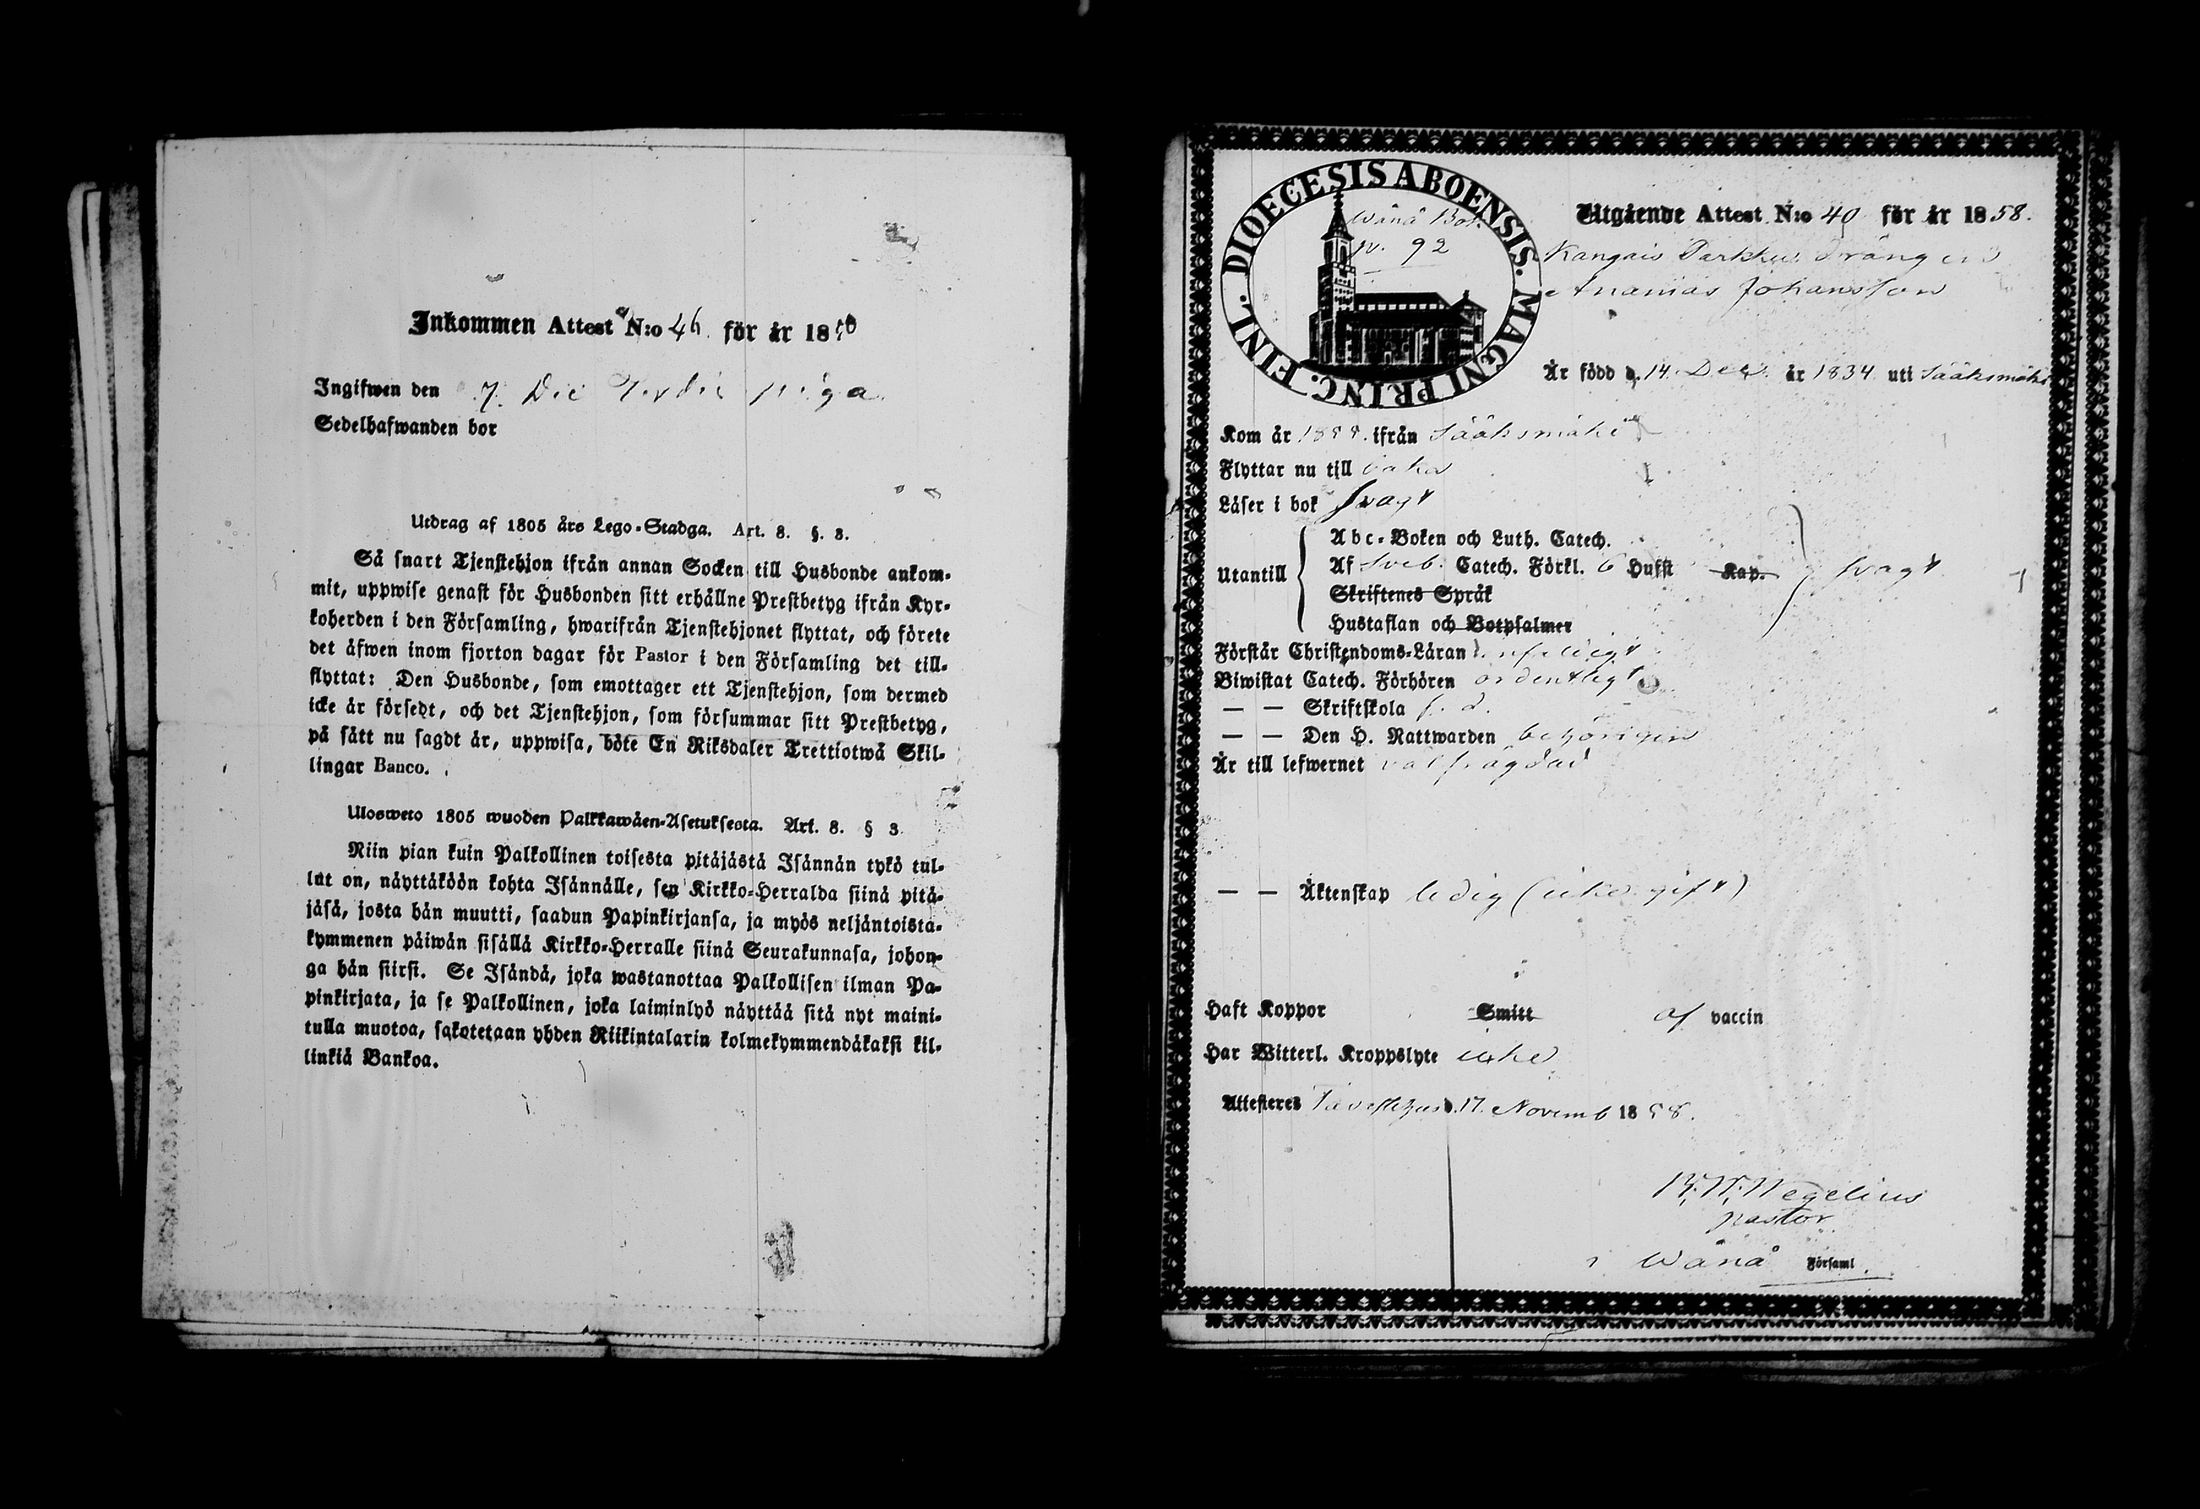 Inkommen Attest N:o 46 för år 18
Ingifwen den 7. Dec
Sedelhafwanden bor
Utdrag af 1805 års Lego-Stadga. Art. 8. §. 3.
Så snart Tjenstehjon ifrån annan Socken till Husbonde ankom-
mit, uppwise genast för Husbonden sitt erhållne Prestbetyg ifrån Kyr-
koherden i den Församling, hwarifrån Tjenstehjonet flyttat, och förete
det äfwen inom fjorton dagar för Pastor i den Församling det till-
flyttat: Den Husbonde, som emottager ett Tjenstehjon, som dermed
icke är försedt, och det Tjenstehjon, som försummar sitt Prestbetyg,
på sätt nu sagdt är, uppwisa, böte En Riksdaler Trettiotwå Skil-
lingar Banco.
Ulosweto 1805 wuoden Palkkawäen-Asetuksesta. Art. 8. § 3
Niin pian kuin Palkollinen toisesta pitäjästä Isännän tykö tul-
lut on, näyttäköön kohta Isännälle, sen Kirkko-Herralda siinä pitä-
jäsä, josta hän muutti, saadun Papinkirjansa, ja myös neljäntoista-
kymmenen päiwän sisällä Kirkko-Herralle siinä Seurakunnasa, johon-
ga hän siirsi. Se Isändä, joka wastanottaa Palkollisen ilman Pa-
pinkirjata, ja se Palkollinen, joka laiminlyö näyttää sitä nyt maini-
tulla muotoa, sakotetaan yhden Riikintalarin kolmekymmendäkaksi kil-
linkiä Bankoa.
DIOECESIS ABOENSIS. MAGNI PRINC. FINL.
Wånå Bok
p. 92
Utgående Attest N:o 40 för år 1858.
Kangais Parkku Drängen
Ananias Johansson
Är född d. 14 Dec. år 1834 uti Sääksmäki
Kom år 1855. ifrån Sääksmäki
Flyttar nu till
Läser i bok svagt
Utantill
Abc-Boken och Luth. Catech.
Af Sveb. Catech. Förkl. 6 Hufst Kap.
svagt
Skriftenes Språk
Hustaflan och Botpsalmer
Förstår Christendoms-Läran enfaldigt
Biwistat Catech. Förhören ordentligt
— — Skriftskola f. d.
— — Den H. Nattwarden behörigen
Är till lefwernet välfrägdad
— — Äktenskap ledig (icke gift)
Haft Koppor Smitt af vaccin
Har Witterl. Kroppslyte icke
Attesteras Tavastehus d. 17. Novemb 1858.
B. W. Wegelius
pastor
i Wånå Församl.